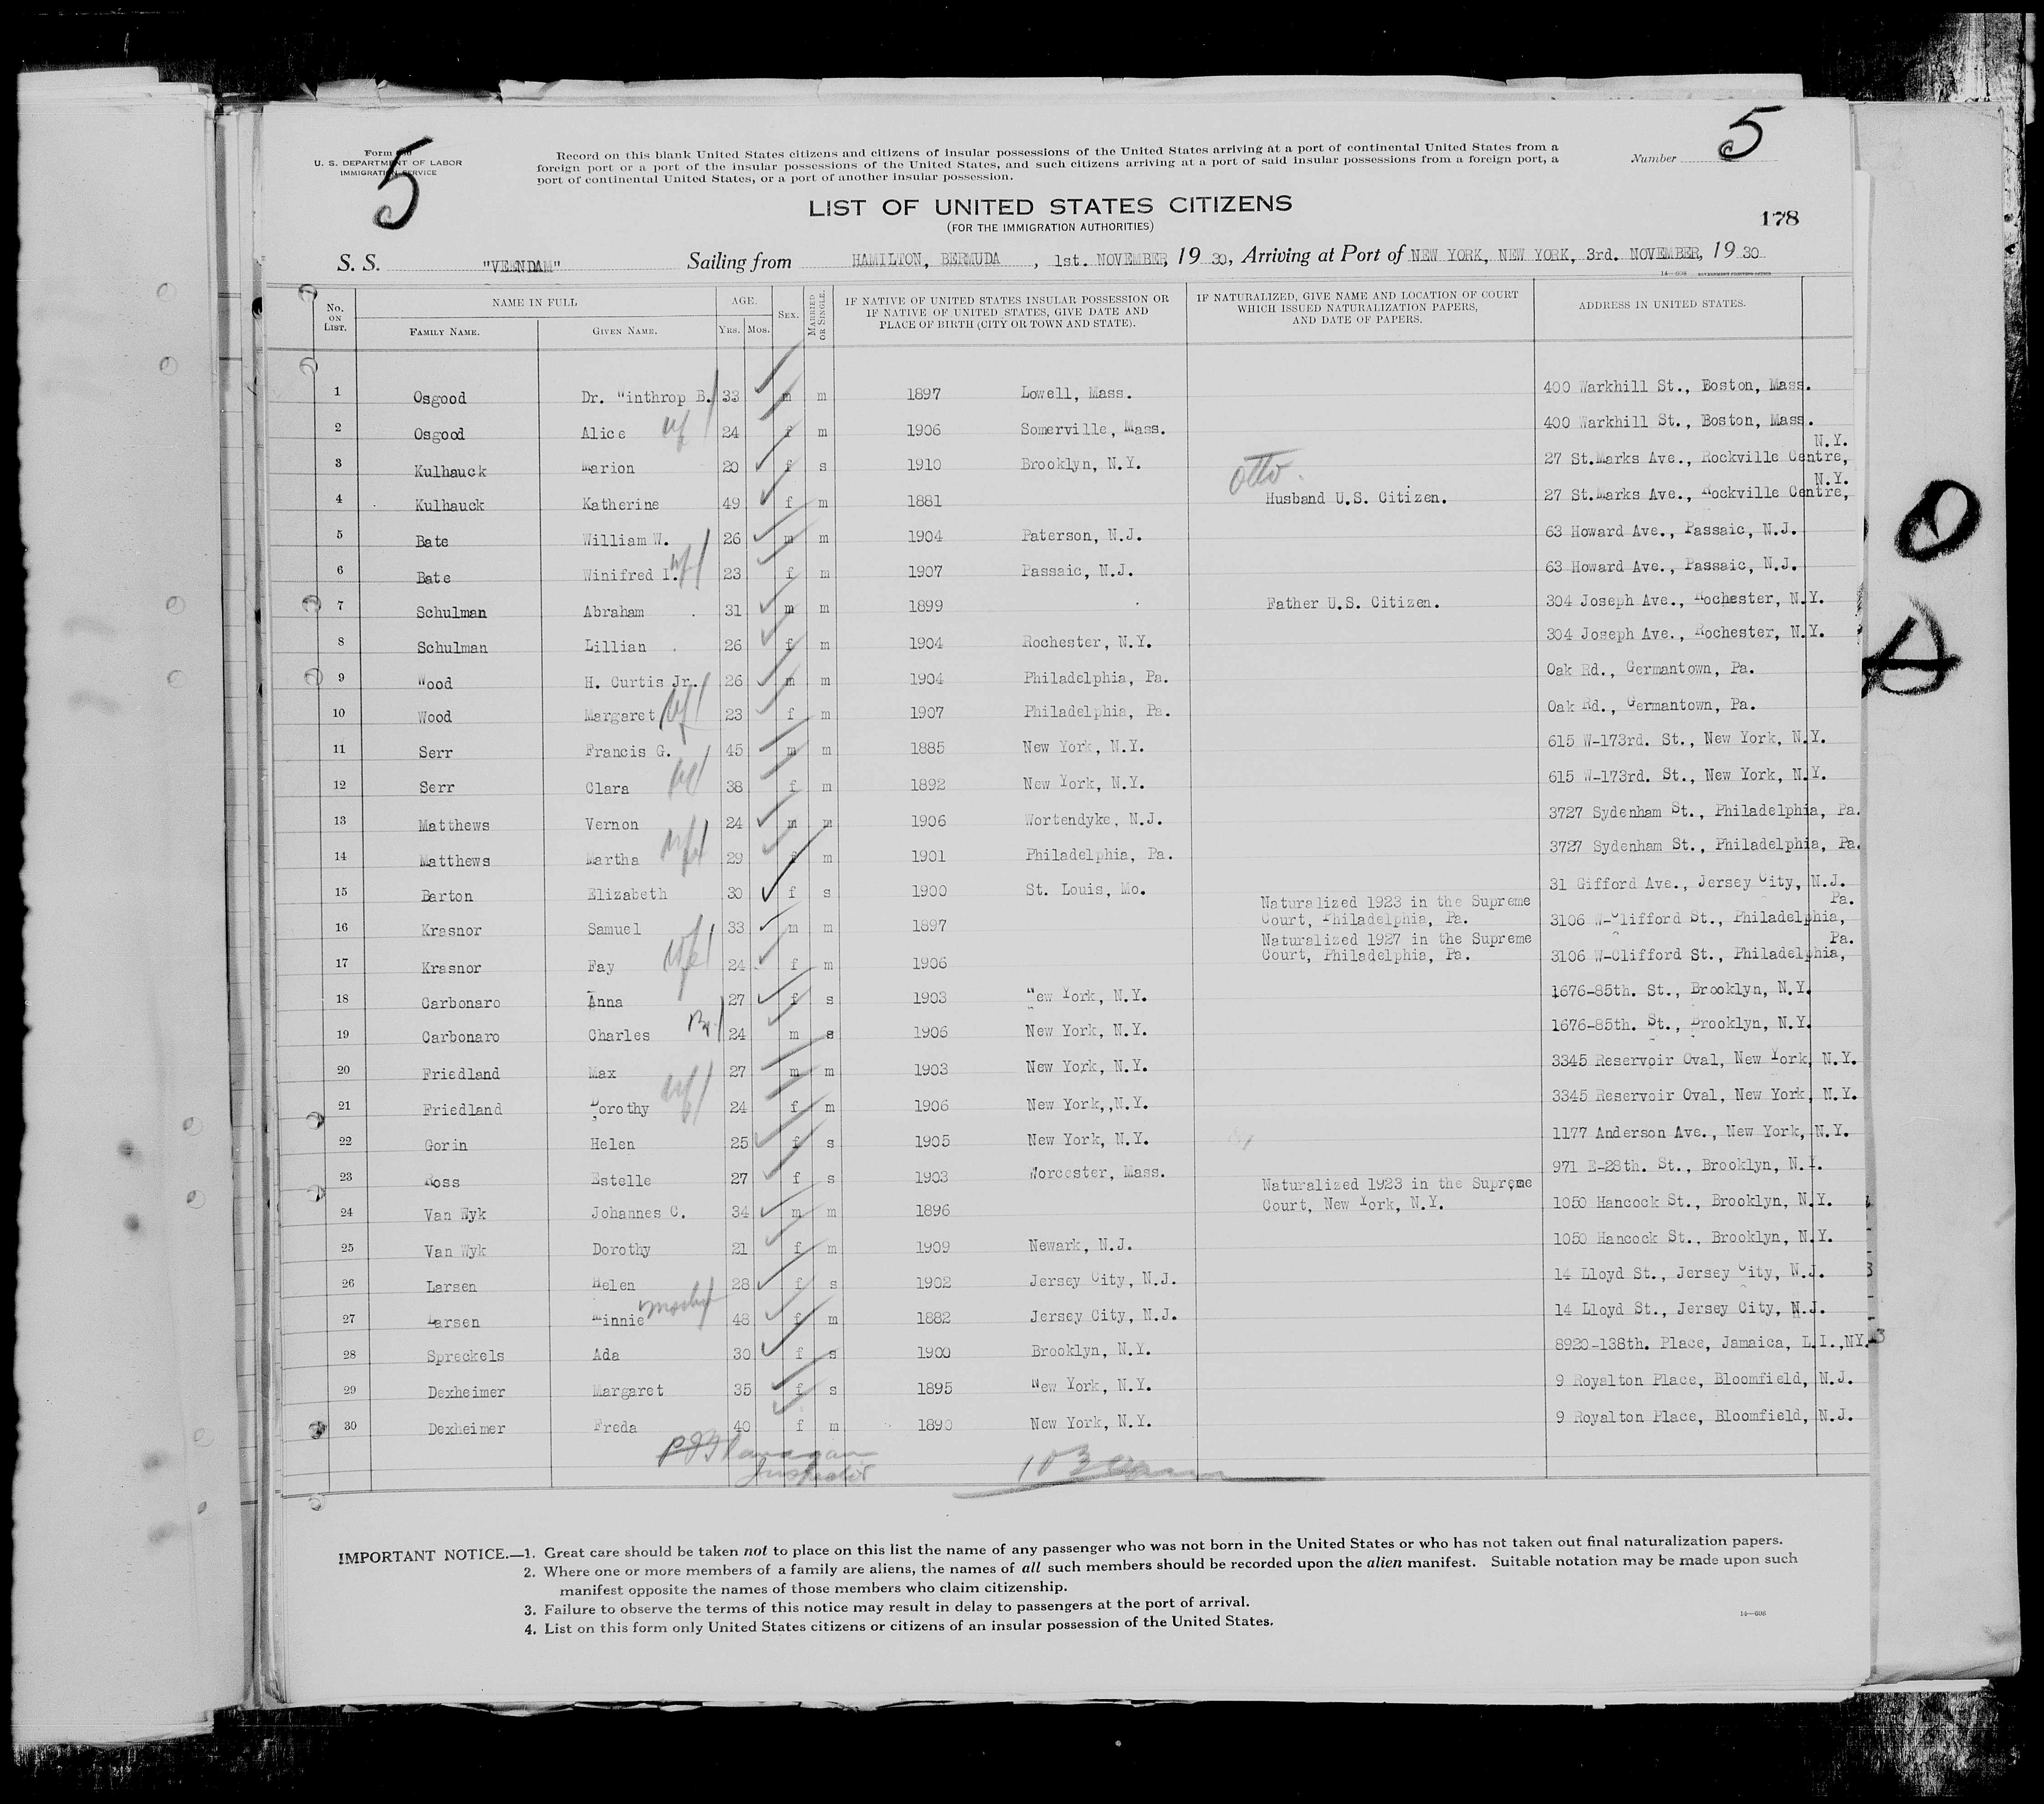 5
5
Form
U. S. DEPARTMENT OF LABOR
IMMIGRATION SERVICE
Record on this blank United States citizens and citizens of insular possessions of the United States arriving at a port of continental United States from a
foreign port or a port of the insular possessions of the United States, and such citizens arriving at a port of said insular possessions from a foreign port, a
port of continental United States, or a port of another insular possession.
Number
LIST OF UNITED STATES CITIZENS
(FOR THE IMMIGRATION AUTHORITIES)
178
S. S. "VEENDAM" Sailing from HAMILTON, BERMUDA, 1st. NOVEMBER, 1930, Arriving at Port of NEW YORK, NEW YORK, 3rd. NOVEMBER, 1930
14—608 GOVERNMENT PRINTING OFFICE
No. ON LIST. NAME IN FULL FAMILY NAME. GIVEN NAME. AGE. YRS. MOS. SEX. MARRIED OR SINGLE. IF NATIVE OF UNITED STATES INSULAR POSSESSION OR IF NATIVE OF UNITED STATES, GIVE DATE AND PLACE OF BIRTH (CITY OR TOWN AND STATE). IF NATURALIZED, GIVE NAME AND LOCATION OF COURT WHICH ISSUED NATURALIZATION PAPERS, AND DATE OF PAPERS. ADDRESS IN UNITED STATES.
1 Osgood Dr. "inthrop B. 33 m m 1897 Lowell, Mass. 400 Warkhill St., Boston, Mass.
2 Osgood Alice wf 24 f m 1906 Somerville, Mass. 400 Warkhill St., Boston, Mass.
3 Kulhauck Marion 20 f s 1910 Brooklyn, N.Y. 27 St.Marks Ave., Rockville Centre, N.Y.
Otto.
4 Kulhauck Katherine 49 f m 1881 Husband U.S. Citizen. 27 St.Marks Ave., Rockville Centre, N.Y.
5 Bate William W. 26 m m 1904 Paterson, N.J. 63 Howard Ave., Passaic, N.J.
6 Bate Winifred I. wf 23 f m 1907 Passaic, N.J. 63 Howard Ave., Passaic, N.J.
7 Schulman Abraham 31 m m 1899 Father U.S. Citizen. 304 Joseph Ave., Rochester, N.Y.
8 Schulman Lillian 26 f m 1904 Rochester, N.Y. 304 Joseph Ave., Rochester, N.Y.
9 Wood H. Curtis Jr. 26 m m 1904 Philadelphia, Pa. Oak Rd., Germantown, Pa.
10 Wood Margaret wf 23 f m 1907 Philadelphia, Pa. Oak Rd., Germantown, Pa.
11 Serr Francis G. 45 m m 1885 New York, N.Y. 615 W-173rd. St., New York, N.Y.
12 Serr Clara wf 38 f m 1892 New York, N.Y. 615 W-173rd. St., New York, N.Y.
13 Matthews Vernon 24 m m 1906 Wortendyke, N.J. 3727 Sydenham St., Philadelphia, Pa.
14 Matthews Martha wf 29 f m 1901 Philadelphia, Pa. 3727 Sydenham St., Philadelphia, Pa.
15 Barton Elizabeth 30 f s 1900 St. Louis, Mo. 31 Gifford Ave., Jersey City, N.J.
16 Krasnor Samuel 33 m m 1897 Naturalized 1923 in the Supreme Court, Philadelphia, Pa. 3106 W-Clifford St., Philadelphia, Pa.
17 Krasnor Fay wf 24 f m 1906 Naturalized 1927 in the Supreme Court, Philadelphia, Pa. 3106 W-Clifford St., Philadelphia, Pa.
18 Carbonaro Anna 27 f s 1903 New York, N.Y. 1676-85th. St., Brooklyn, N.Y.
19 Carbonaro Charles Br 24 m s 1906 New York, N.Y. 1676-85th. St., Brooklyn, N.Y.
20 Friedland Max 27 m m 1903 New York, N.Y. 3345 Reservoir Oval, New York, N.Y.
21 Friedland Dorothy wf 24 f m 1906 New York,,N.Y. 3345 Reservoir Oval, New York, N.Y.
22 Gorin Helen 25 f s 1905 New York, N.Y. 1177 Anderson Ave., New York, N.Y.
23 Ross Estelle 27 f s 1903 Worcester, Mass. 971 E-28th. St., Brooklyn, N.Y.
24 Van Wyk Johannes C. 34 m m 1896 Naturalized 1923 in the Supreme Court, New York, N.Y. 1050 Hancock St., Brooklyn, N.Y.
25 Van Wyk Dorothy 21 f m 1909 Newark, N.J. 1050 Hancock St., Brooklyn, N.Y.
26 Larsen Helen 28 f s 1902 Jersey City, N.J. 14 Lloyd St., Jersey City, N.J.
27 Larsen Minnie mother 48 f m 1882 Jersey City, N.J. 14 Lloyd St., Jersey City, N.J.
28 Spreckels Ada 30 f s 1900 Brooklyn, N.Y. 8920-138th. Place, Jamaica, L.I.,NY.
29 Dexheimer Margaret 35 f s 1895 New York, N.Y. 9 Royalton Place, Bloomfield, N.J.
30 Dexheimer Freda 40 f m 1890 New York, N.Y. 9 Royalton Place, Bloomfield, N.J.
Inspector
IMPORTANT NOTICE.—1. Great care should be taken not to place on this list the name of any passenger who was not born in the United States or who has not taken out final naturalization papers.
2. Where one or more members of a family are aliens, the names of all such members should be recorded upon the alien manifest. Suitable notation may be made upon such
manifest opposite the names of those members who claim citizenship.
3. Failure to observe the terms of this notice may result in delay to passengers at the port of arrival.
4. List on this form only United States citizens or citizens of an insular possession of the United States.
14—608